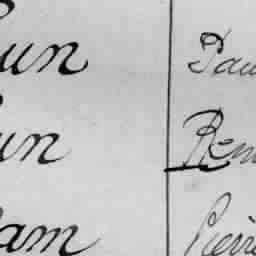 un Pau
un Rem
am Pierre